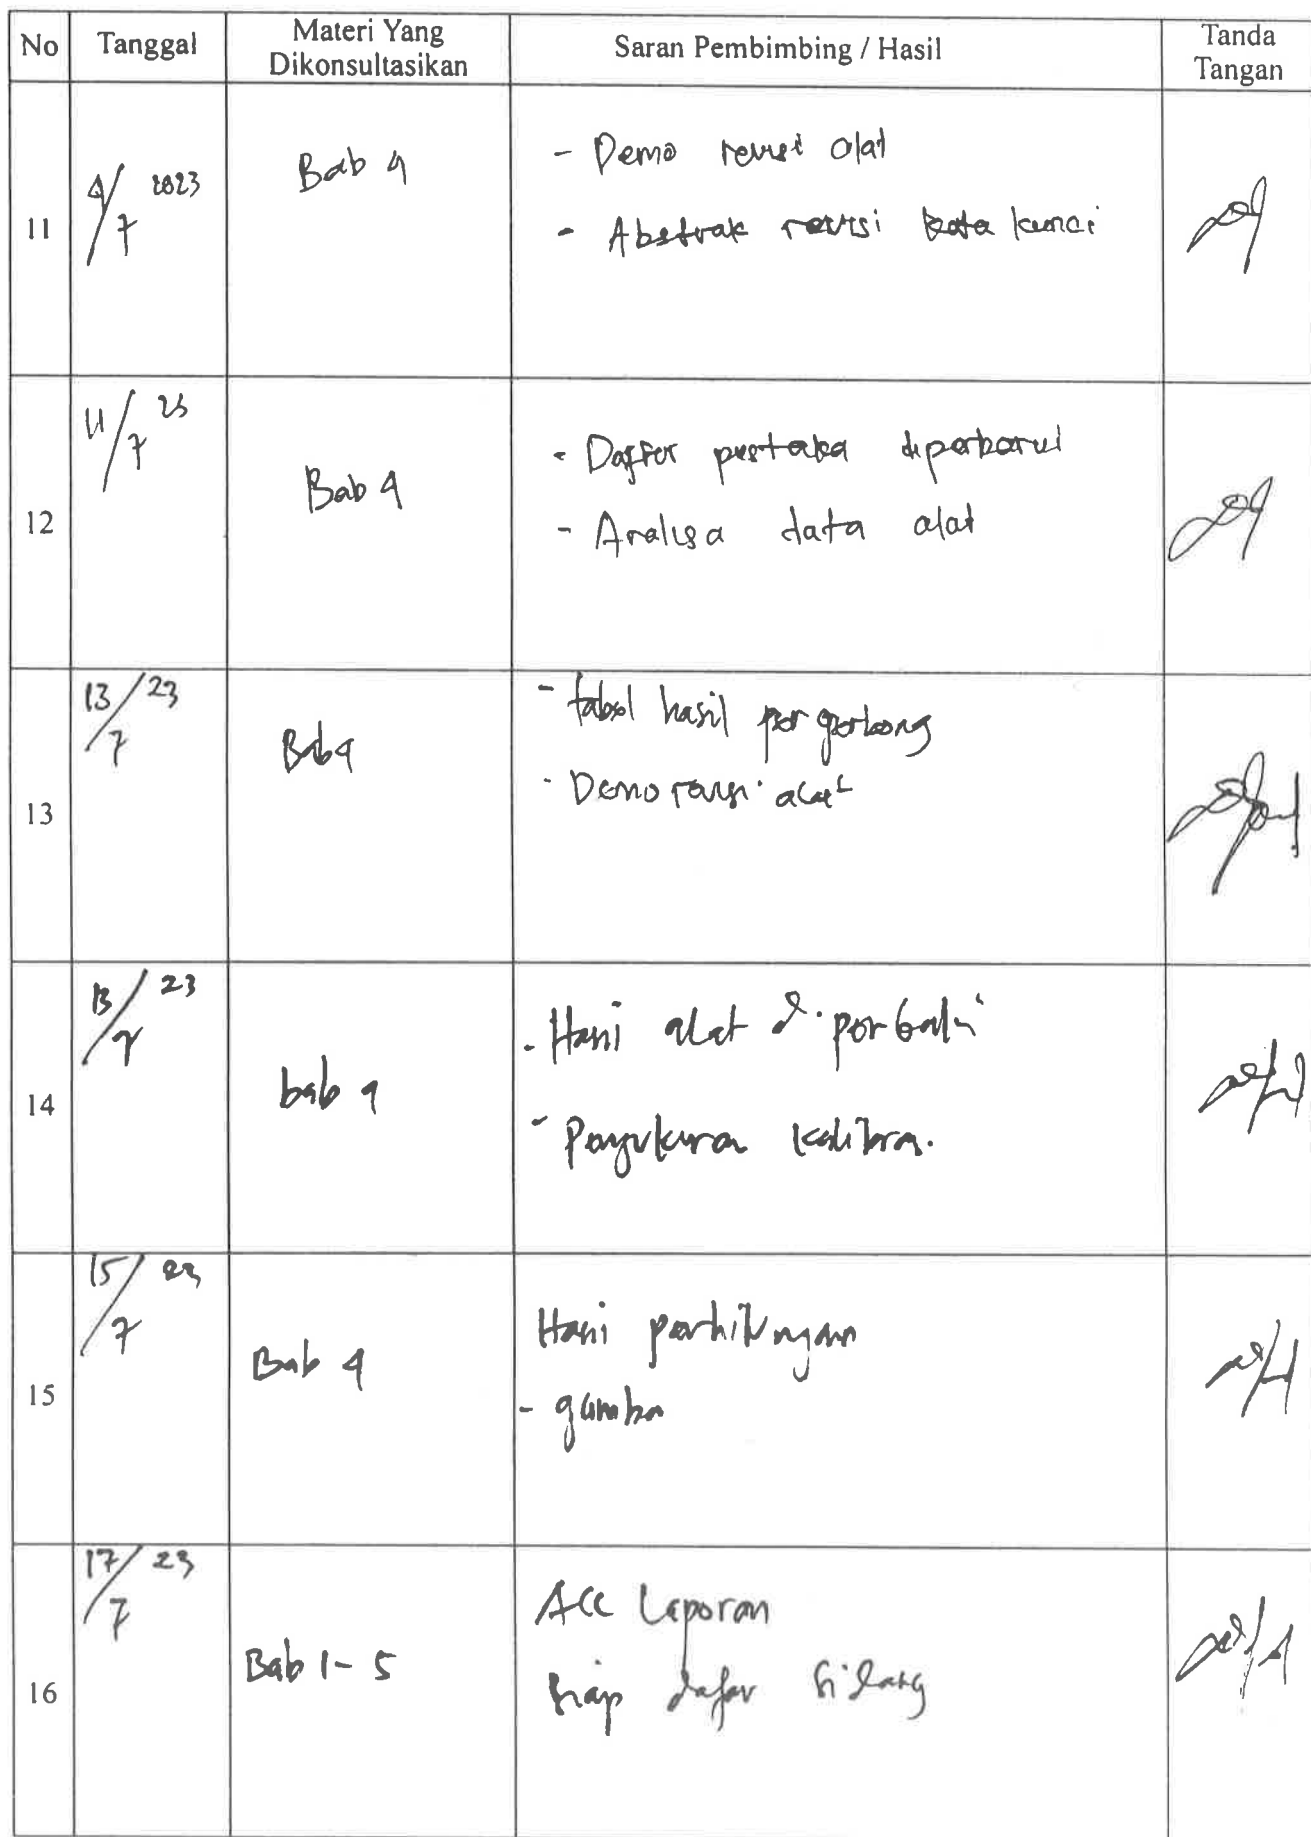 No Tanggal Materi Yang Dikonsultasikan Saran Pembimbing / Hasil Tanda Tangan
11 4/7 2023 Bab 4 - Demo revisi alat
- Abstrak revisi kata kunci
12 11/7 23 Bab 4 - Daftar pustaka diperbarui
- Analisa data alat
13 13/7 23 Bab 4 - tabel hasil per
- Demo revisi alat
14 13/7 23 bab 4 - Hasil alat diperbaiki
- Pengukuran
15 15/7 23 Bab 4 Hasil perhitungan
- gambar
16 17/7 23 Bab 1-5 ACC Laporan
siap daftar sidang